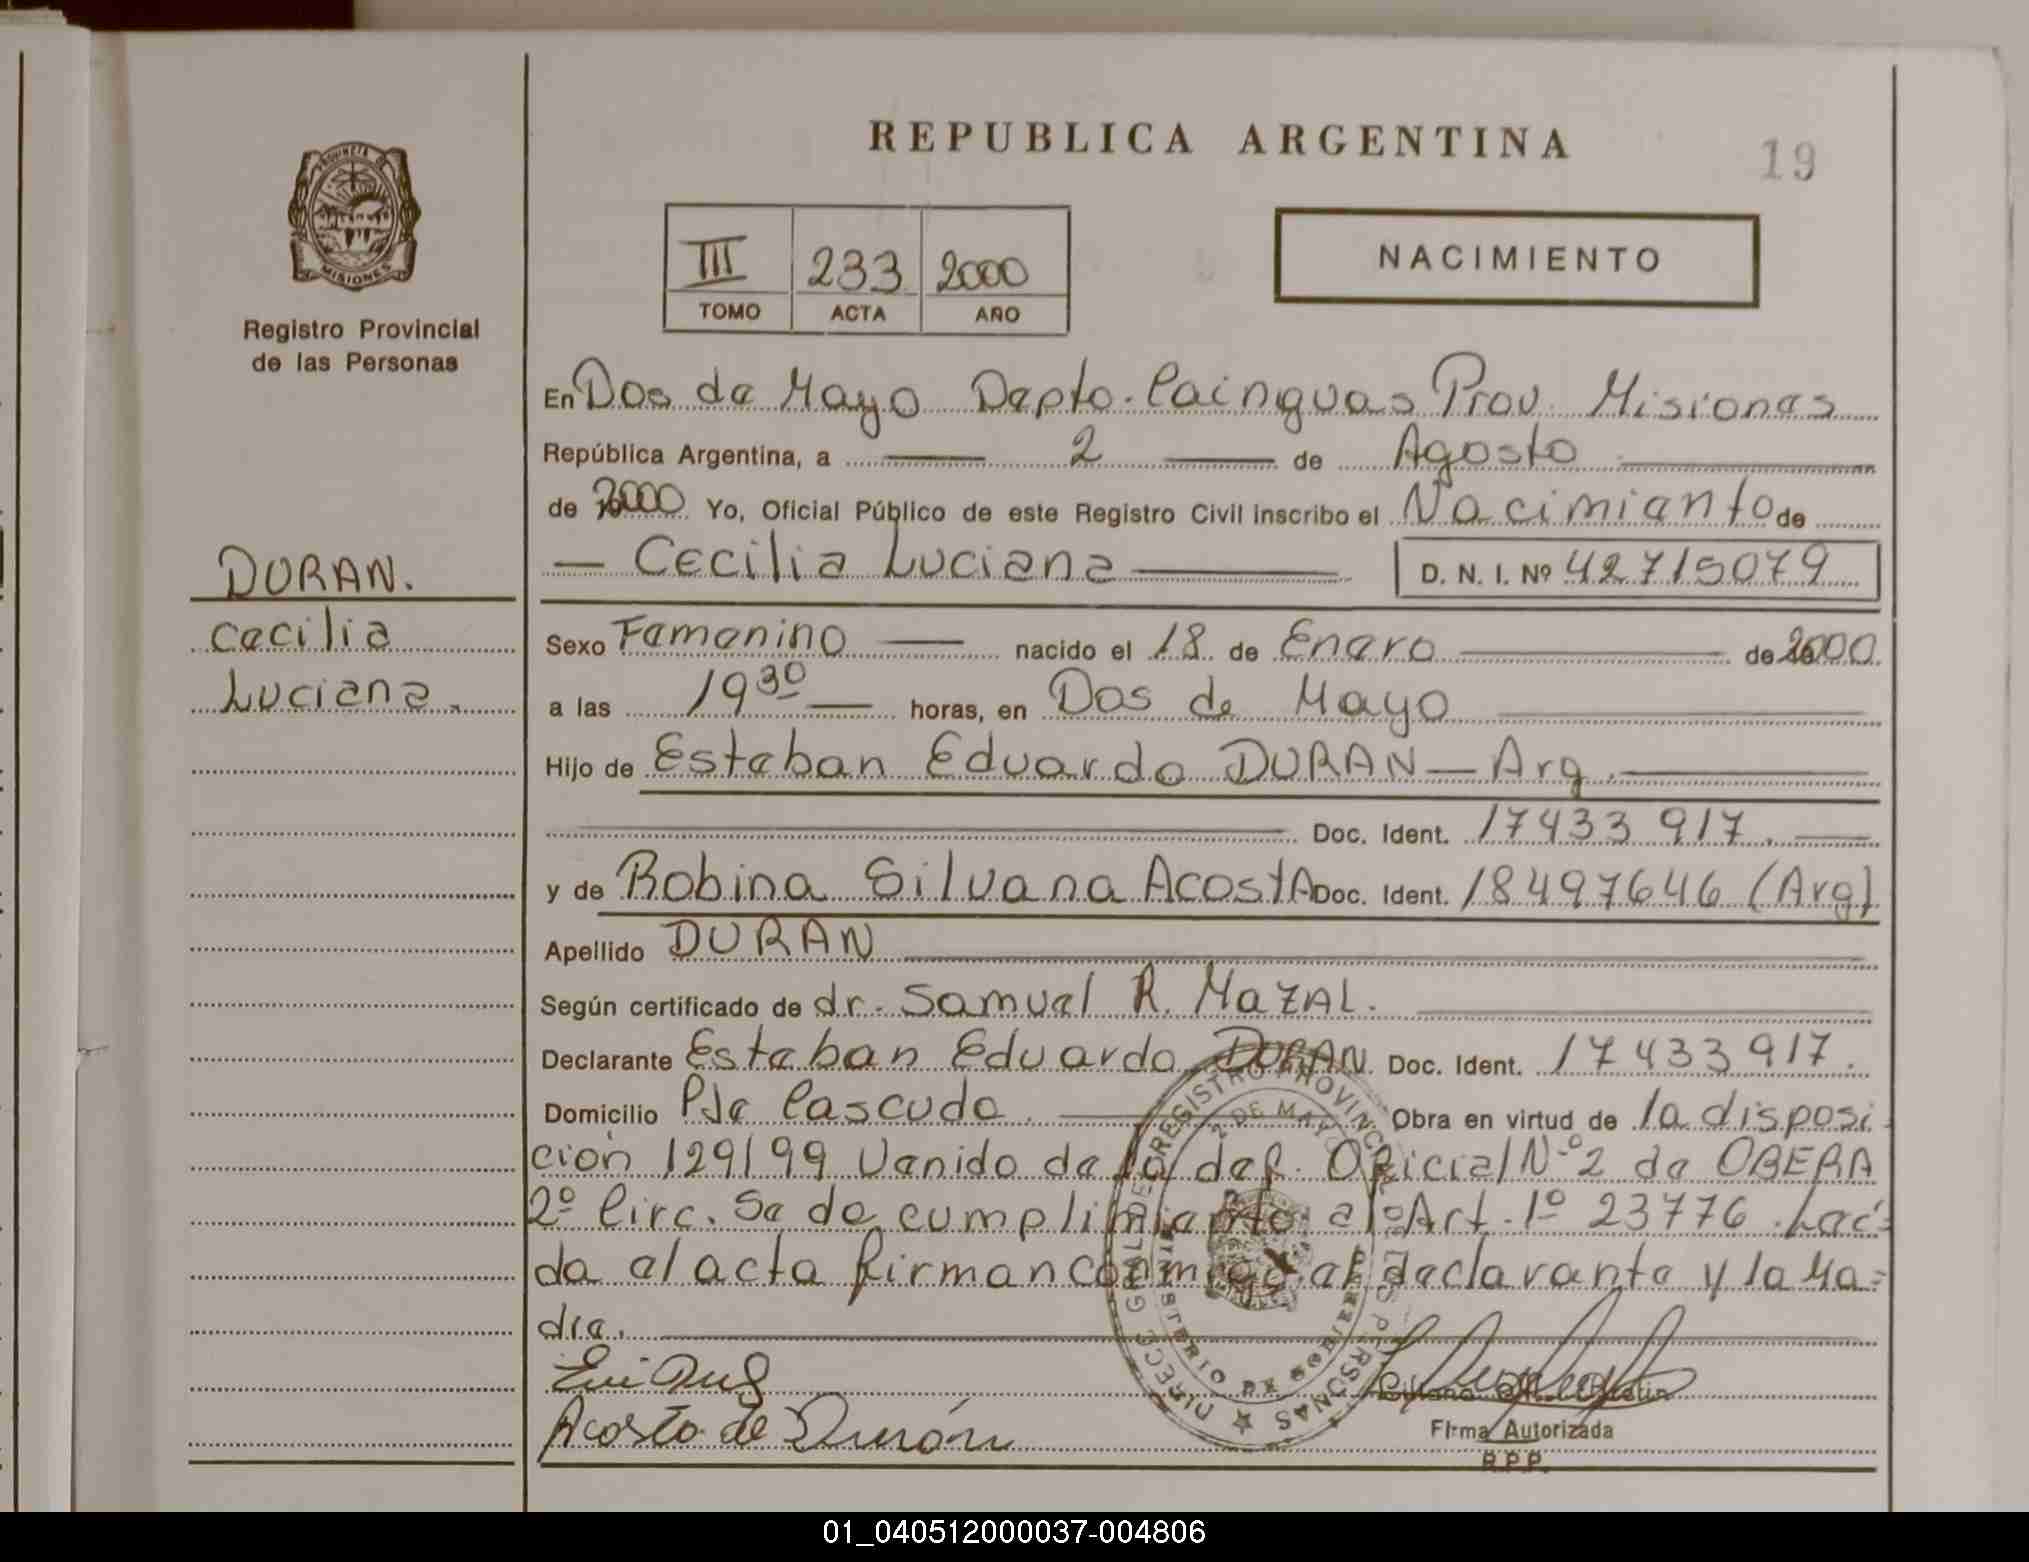 REPUBLICA ARGENTINA
19
PROVINCIA DE MISIONES
Registro Provincial
de las Personas
III 233 2000
TOMO ACTA AÑO
NACIMIENTO
En Dos de Mayo Depto. Cainguas Prov. Misiones
República Argentina, a 2 de Agosto
de 2000 Yo, Oficial Público de este Registro Civil inscribo el Nacimiento de
Cecilia Luciana D. N. I. Nº 42715079
DURAN.
Cecilia
Luciana.
Sexo Femenino nacido el 18 de Enero de 2000
a las 19 30 horas, en Dos de Mayo
Hijo de Esteban Eduardo DURAN - Arg.
Doc. Ident. 17433917.
y de Robina Silvana AcostA Doc. Ident. 18497646 (Arg)
Apellido DURAN
Según certificado de dr. Samuel R. MaZAL.
Declarante Esteban Eduardo DURAN Doc. Ident. 17433917.
Domicilio Pje Cascudo. Obra en virtud de la disposi
ción 129/99 Venido de la def. Oficial Nº 2 de OBERA
2º Circ. Se de cumplimiento al Art. 1º 23776. Leí=
da el acta firman conmigo el declarante y la Ma=
dre.
Acosta de Durán
Firma Autorizada
R.P.P.
DIRECC GRAL DE REGISTRO PROVINCIAL DE LAS PERSONAS
2 DE MAYO
MINISTERIO DE GOBIERNO
01_040512000037-004806